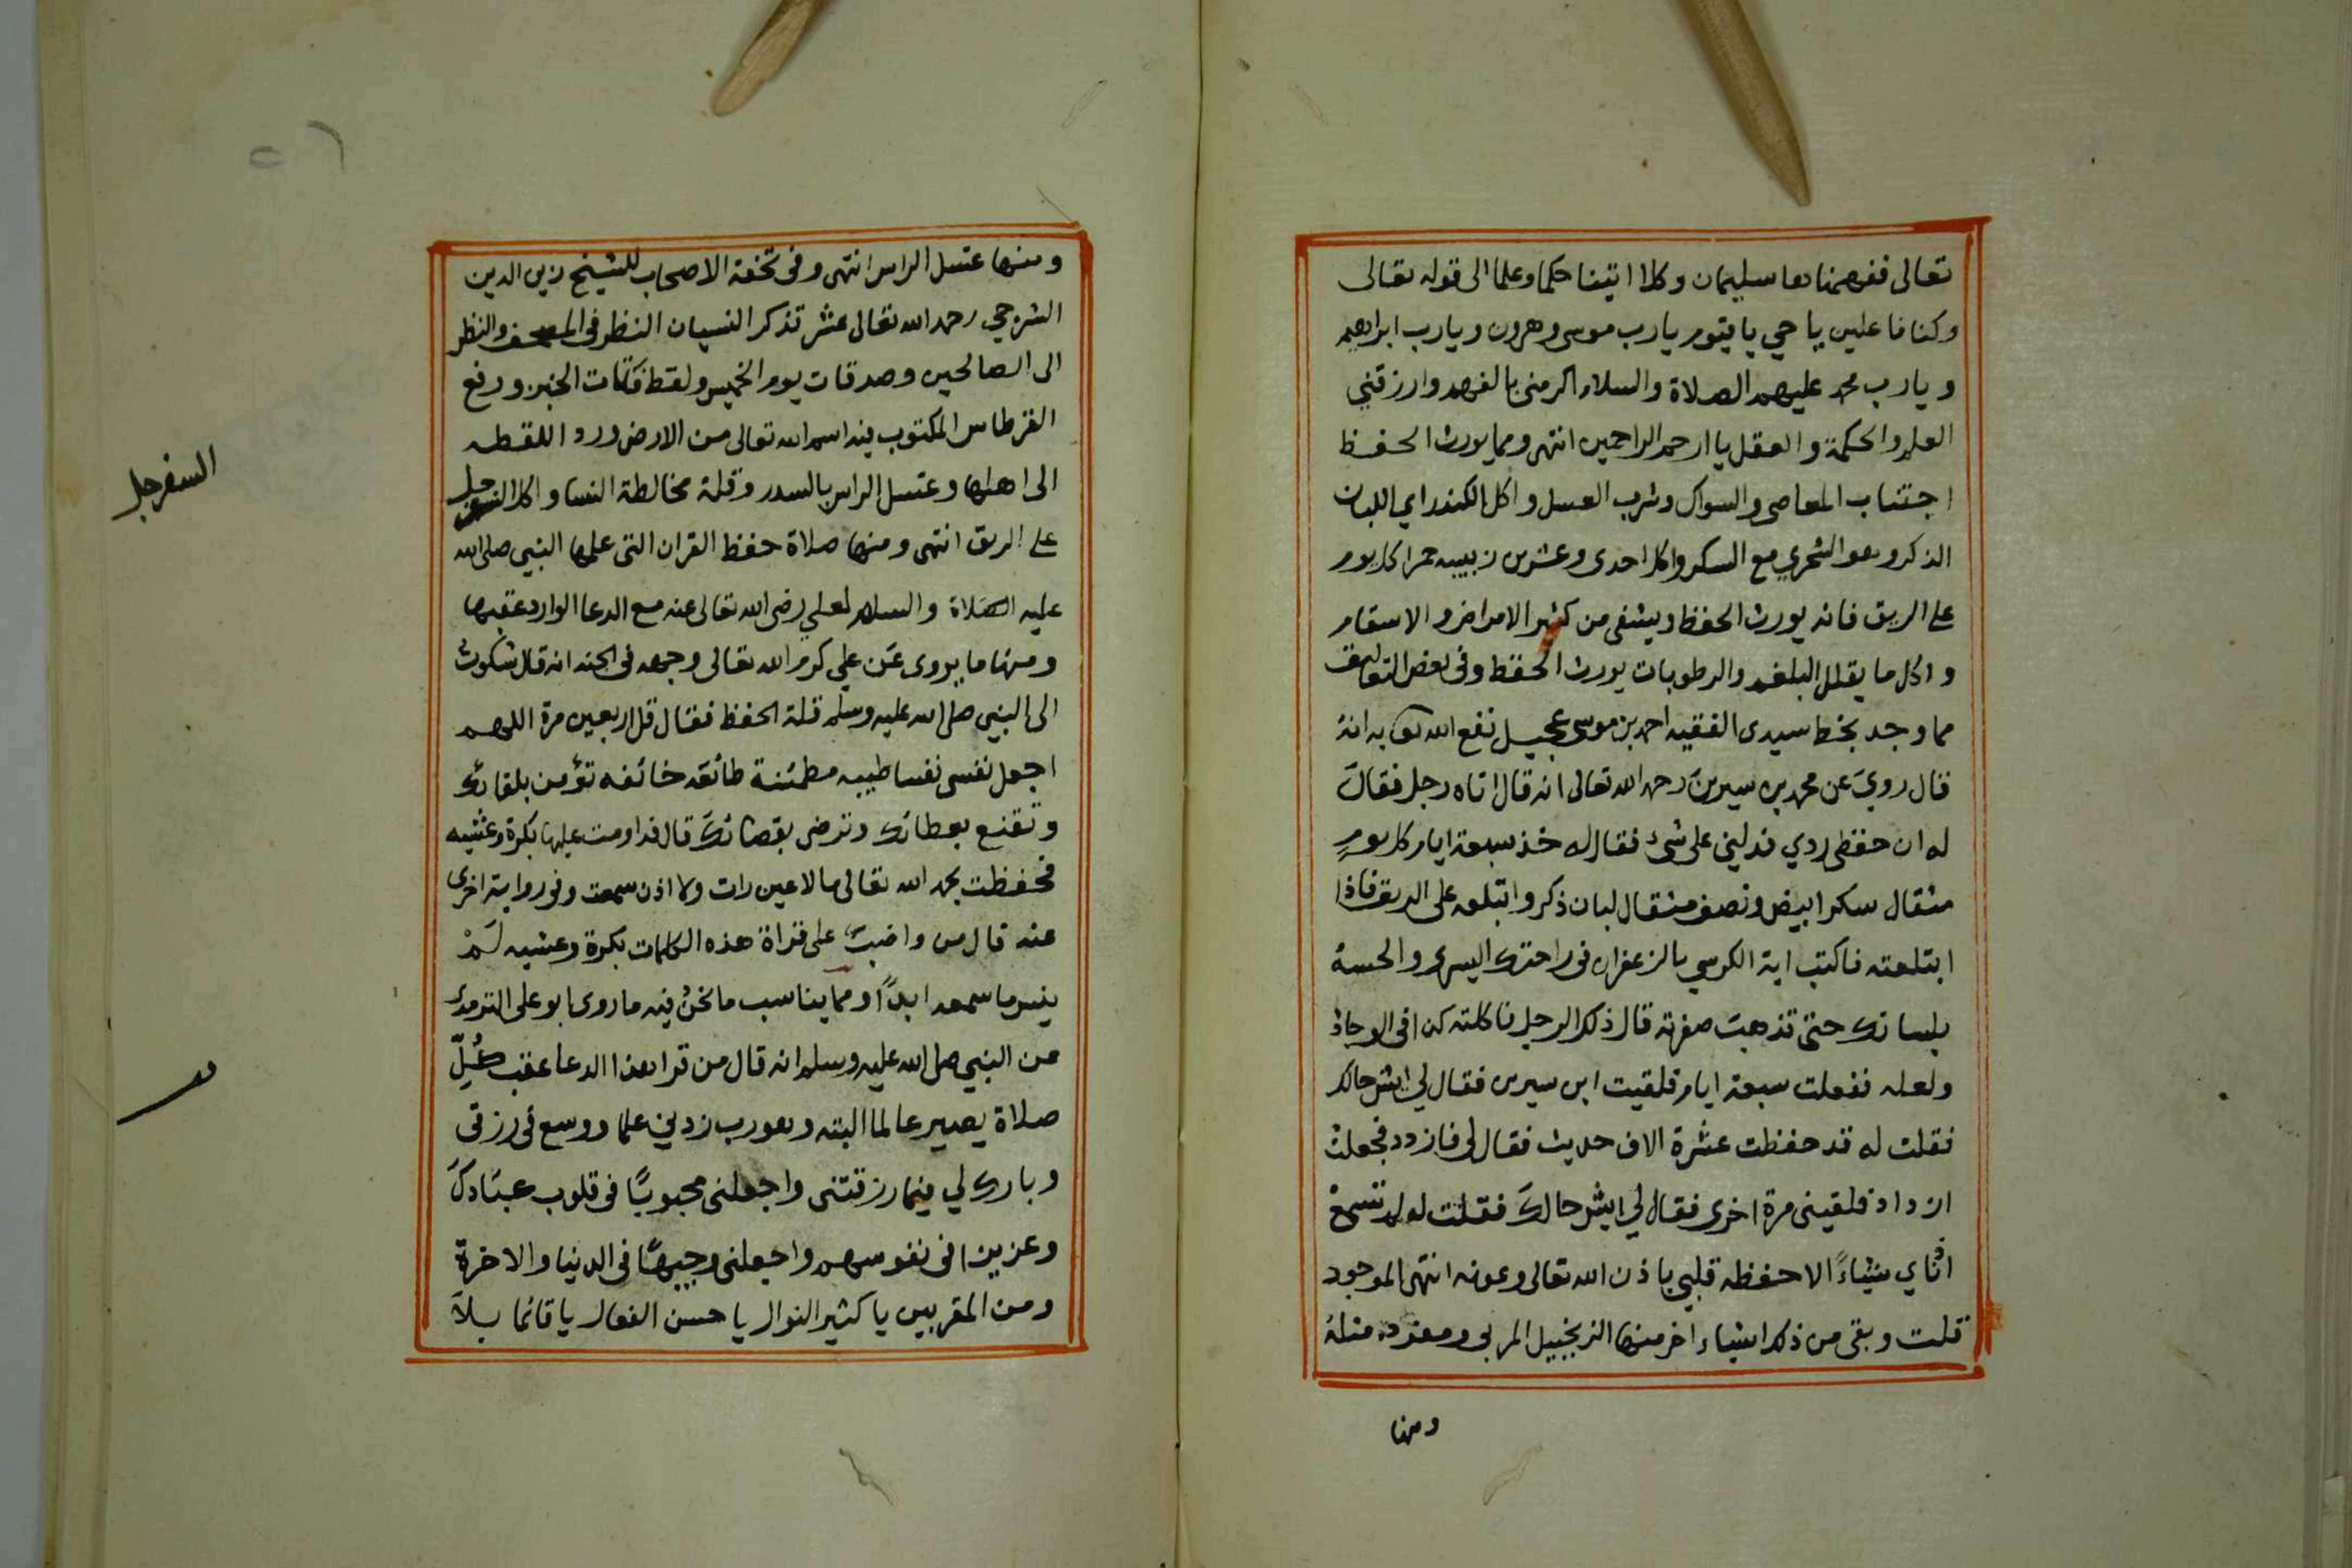 تعالى ففهمناها سليمان وكلا اتينا حكما وعلما الى قوله تعالى
وكنا فاعلين يا حي يا قيوم يا رب موسى وهرون ويا رب ابراهيم
ويا رب محمد عليهم الصلاة والسلام اكرمني بالفهم وارزقني
العلم والحكمة والعقل يا ارحم الراحمين انتهى ومما يورث الحفظ
اجتناب المعاصي والسواك وشرب العسل واكل الكندر اي اللبان
الذكر وهو الشحري مع السكر واكل احدى وعشرين زبيبه حمرا كل يوم
على الريق فانه يورث الحفظ ويشفي من كثير الامراض والاسقام
واكل ما يقلل البلغم والرطوبات يورث الحفظ وفي بعض التعاليق
مما وجد بخط سيدي الفقيه احمد بن موسى عجيل نفع الله به انه
قال روي عن محمد بن سيرين رحمه الله تعالى انه قال اتاه رجل فقال
له ان حفظي ردي فدلني على شئ فقال له خذ سبعة ايام كل يوم
مثقال سكر ابيض ونصف مثقال لبان ذكر وابتلعه على الريق فاذا
ابتلعته فاكتب اية الكرسي بالزعفران في راحتك اليسرى والحسه
بلسانك حتى تذهب صفرته قال ذلك الرجل
ولعله ففعلت سبعة ايام فلقيت ابن سيرين فقال لي ايش حالك
فقلت له قد حفظت عشرة الاف حديث فقال لي فازدد فجعلت
ازداد فلقيني مرة اخرى فقال لي ايش حالك فقلت له لم تسمع
اذناي شياءً الا حفظه قلبي باذن الله تعالى وعونه انتهى الموجود
قلت وبقي من ذلك اشياء اخر منها الزنجبيل المربى ومفرده مثله
ومنها
ومنها غسل الراس انتهى وفي تحفة الاصحاب للشيخ زين الدين
الشرجي رحمه الله تعالى عشر تذكر النسيان النظر في المصحف والنظر
الى الصالحين وصدقات يوم الخميس ولقط فتات الخبز ورفع
القرطاس المكتوب فيه اسم الله تعالى من الارض ورد اللقطه
الى اهلها وغسل الراس بالسدر وقلة مخالطة النسا واكل السفرجل
على الريق انتهى ومنها صلاة حفظ القران التي علمها النبي صلى الله
عليه الصلاة والسلام لعلي رضي الله تعالى عنه مع الدعا الوارد عقبها
ومنها ما يروى عن علي كرم الله تعالى وجهه في الجنه انه قال شكوت
الى النبي صلى الله عليه وسلم قلة الحفظ فقال قل اربعين مرة اللهم
اجعل نفسي نفسا طيبه مطمئنة طائعه خائفه تؤمن بلقائك
وتقنع بعطائك وترضى بقضائك قال فداومت عليها بكرة وعشيه
فحفظت بحمد الله تعالى ما لا عين رات ولا اذن سمعت وفي رواية اخرى
عنه قال من واضب على قراة هذه الكلمات بكرة وعشيه لم
ينس ما سمعه ابداً ومما يناسب ما نحن فيه ما روى ابو على الترمدي
عن النبي صلى الله عليه وسلم انه قال من قرا هذا الدعا عقب كل
صلاة يصير عالما البته وهو رب زدني علما ووسع في رزقي
وبارك لي فيما رزقتني واجعلني محبوبًا في قلوب عبادك
وعزيزا في نفوسهم واجعلني وجيهًا في الدنيا والاخرة
ومن المقربين يا كثير النوال يا حسن الفعال يا قائما بلا
السفرجل